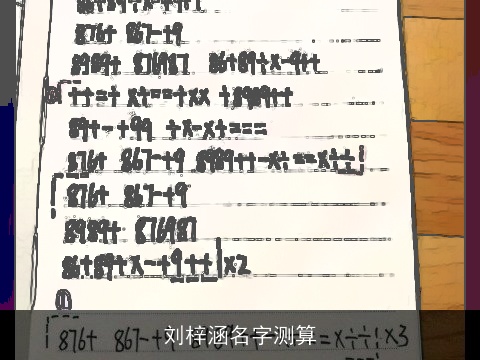 86+89+x-4++1
876+ 867-+9
8989+ 876987 86+89+x-9++
②++=+ x+==+xx +8989++
89+-+99 +x-x+===
876+ 867-+9 8989++-x÷==x÷÷¦
876+ 867-+9
8989+ 876987
86+89+x-+9++ x2
①
876+ 867-+9 =x÷÷¦x3
刘梓涵名字测算